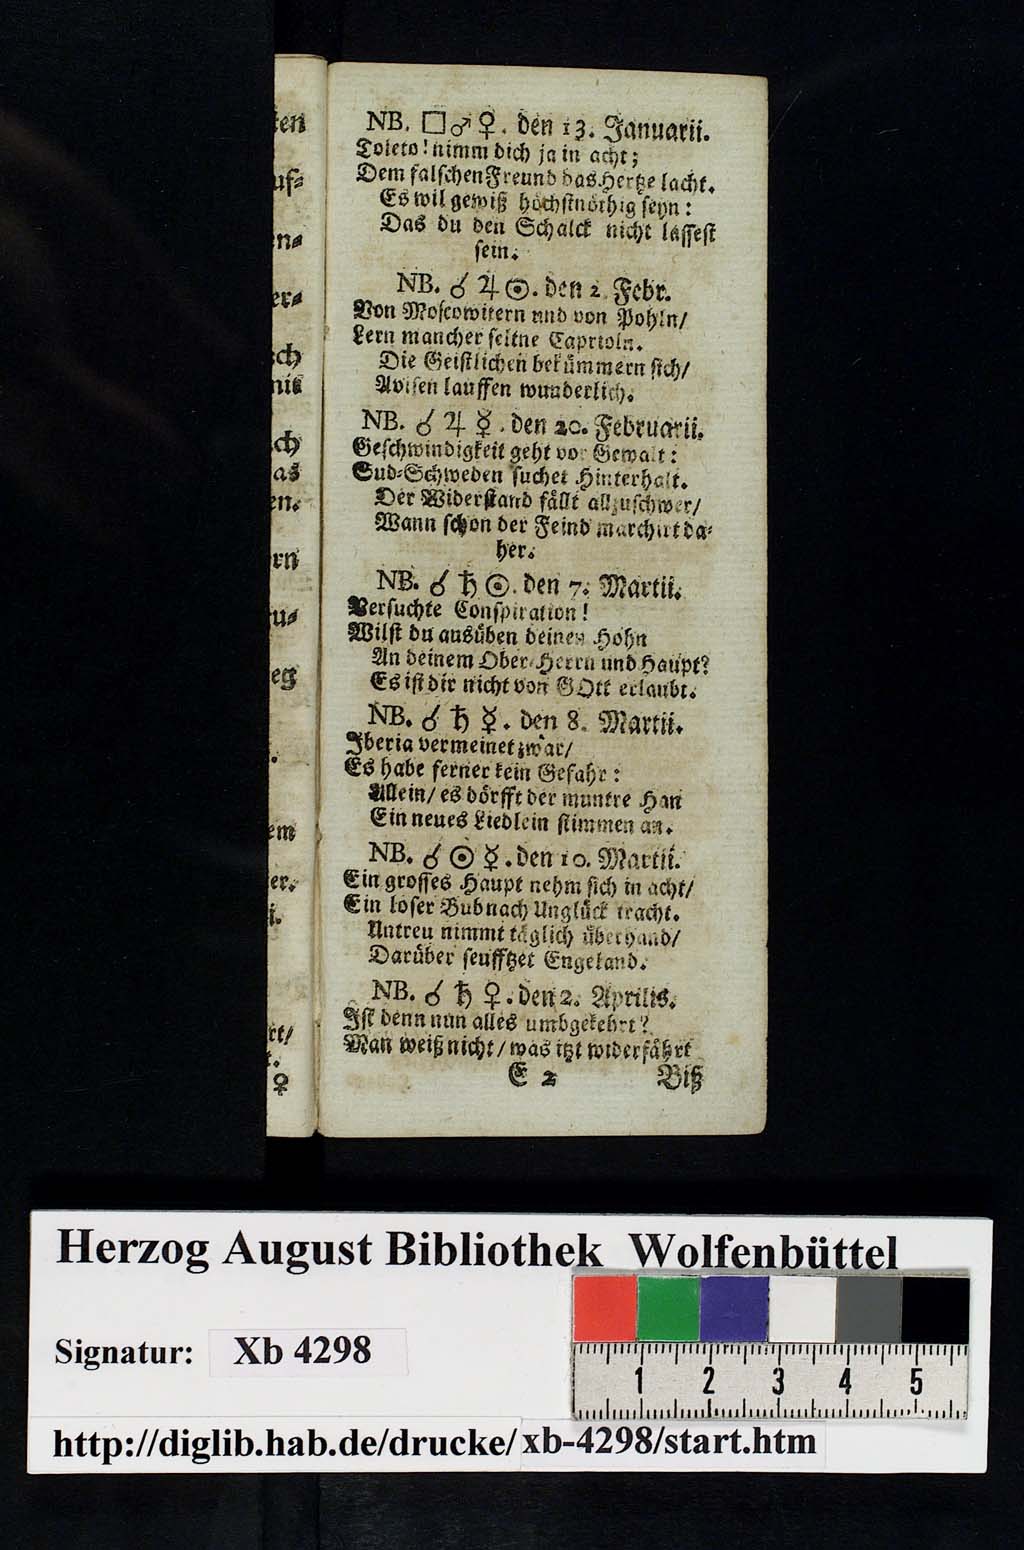 NB. □ ♂ ♀. den 13. Januarii.
Toleto! nimm dich ja in acht;
Dem falschen Freund das Hertze lacht.
Es wil gewiß höchstnöthig seyn:
Das du den Schalck nicht lassest
sein.
NB. ☌ ♃ ☉. den 2. Febr.
Von Moscowitern und von Pohln/
Lern mancher seltne Caprioln.
Die Geistlichen bekümmern sich/
Avisen lauffen wunderlich.
NB. ☌ ♃ ☿. den 20. Februarii.
Geschwindigkeit geht vor Gewalt:
Sud-Schweden suchet Hinterhalt.
Der Widerstand fällt allzuschwer/
Wann schon der Feind marchirt da-
her.
NB. ☌ ♄ ☉. den 7. Martii.
Versuchte Conspiration!
Wilst du ausüben deinen Hohn
An deinem Ober-Herrn und Haupt?
Es ist dir nicht von GOtt erlaubt.
NB. ☌ ♄ ☿. den 8. Martii.
Iberia vermeinet zwar/
Es habe ferner kein Gefahr:
Allein/ es dörfft der muntre Han
Ein neues Liedlein stimmen an.
NB. ☌ ☉ ☿. den 10. Martii.
Ein grosses Haupt nehm sich in acht/
Ein loser Bub nach Unglück tracht.
Untreu nimmt täglich überhand/
Darüber seufftzet Engeland.
NB. ☌ ♄ ♀. den 2. Aprilis.
Ist denn nun alles umbgekehrt?
Man weiß nicht/ was itzt widerfährt
E 2 Biß
Herzog August Bibliothek Wolfenbüttel
Signatur: Xb 4298
1 2 3 4 5
http://diglib.hab.de/drucke/xb-4298/start.htm